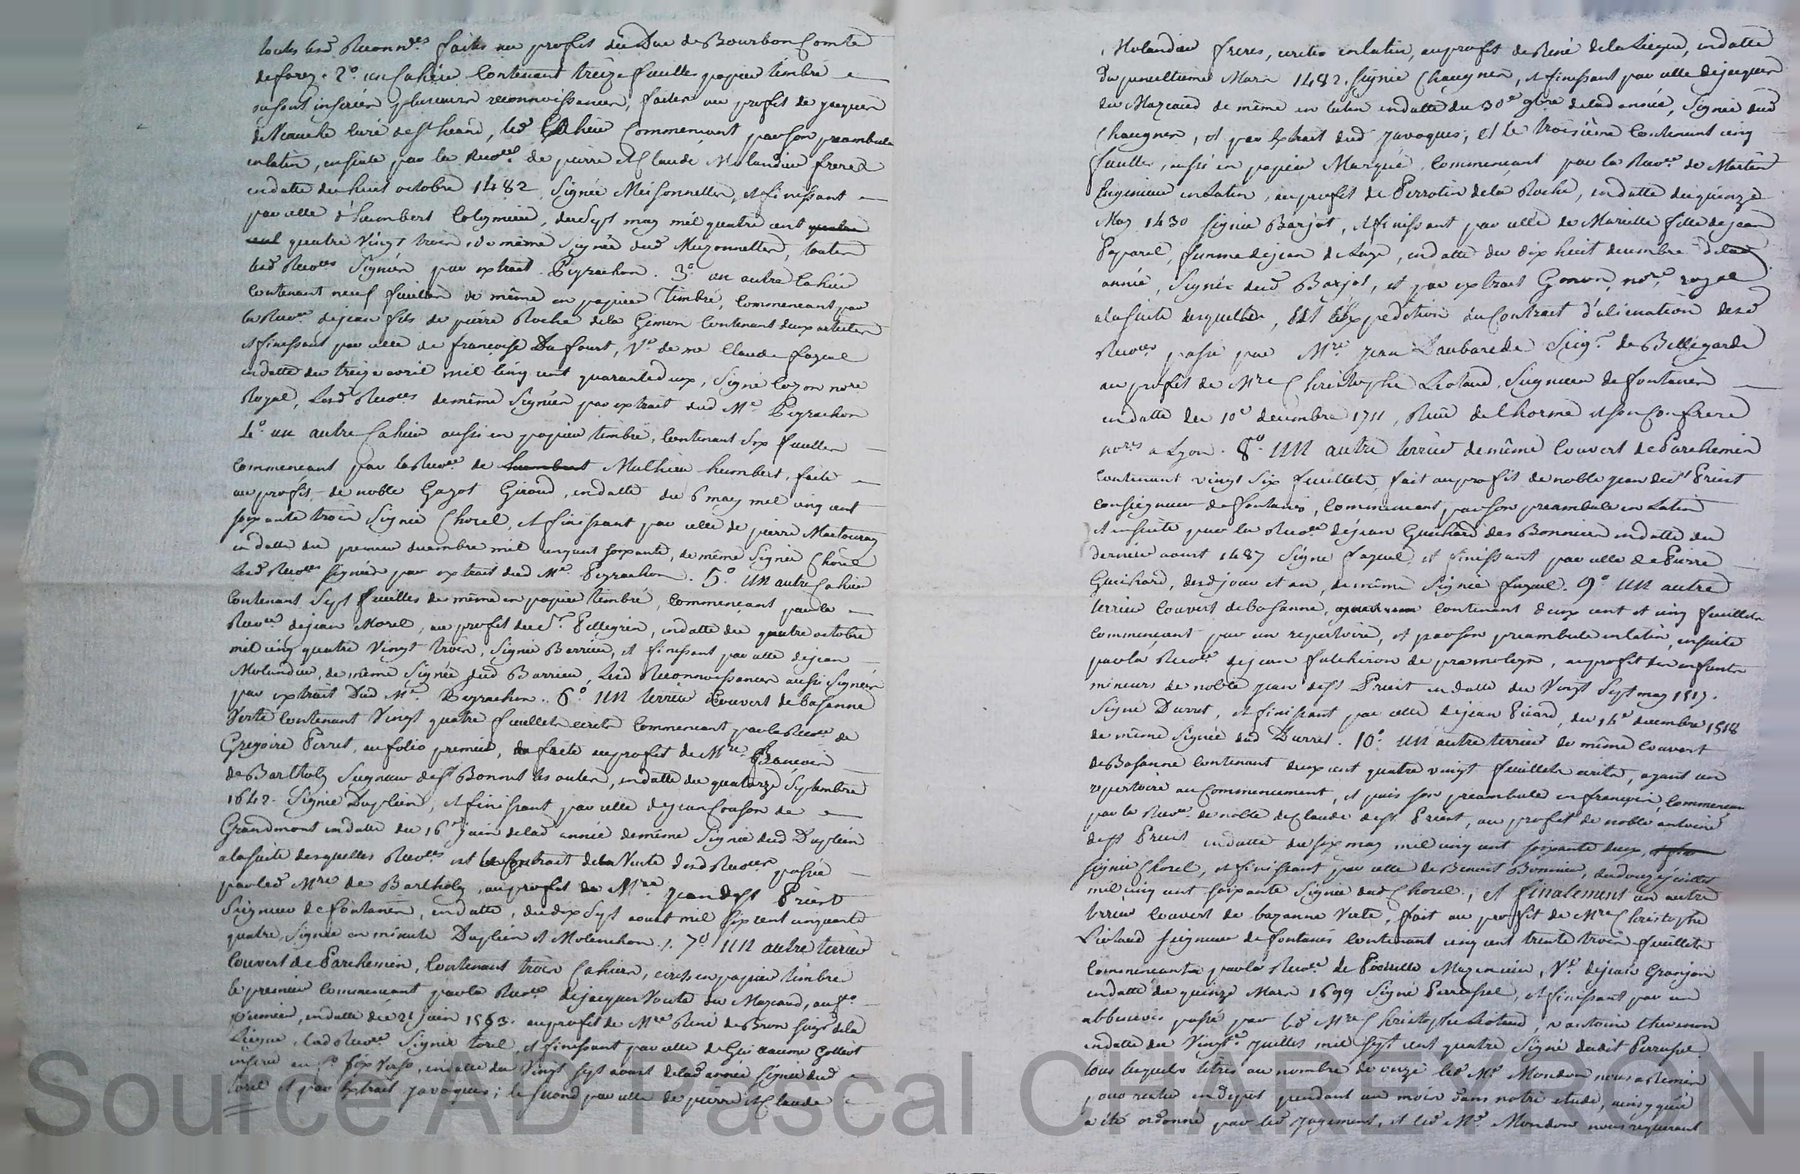 toutes lesd Reconn.es faites au profit du Duc de Bourbon Comte
de forez. 2.o un Cahier Contenant treize feuilles papier timbré
ou sont inserées plusieurs reconnoissances, faites au profit de
curé de St heand, led Cahier Commencant par son preambule
en latin, ensuite par la Reco.ce de pierre et Claude Molandin freres
en datte du huit octobre 1482. Signée Meisonnettes, et finissant
par celle d'humbert Colognieu, du Sept may mil quatre cent quatre
cent quatre Vingt trois, de même Signée dud Meyonnettes, toutes
lesd Reco.ces Signées par extrait Peyrachon. 3.o un autre Cahier
Contenant neuf feuilles de même en papier timbré, Commencant par
la Reco.ce de jean fils de pierre Roche de la Gimon Contenant deux articles
et finissant par celle de françoise Du fourt, V.e de me Claude fazeul
en datte du treize avril mil cinq cent quarante deux, Signé Cozon no.re
Royal, Lesd Reco.ces de même Signées par extrait dud M.e Peyrachon
4.o un autre Cahier aussi en papier timbré, Contenant Six feuilles
Commencant par la Reco.ce de humbert Mathieu humbert, faite
au profit de noble Gazot Giraud, en datte du 6 may mil cinq cent
soixante trois Signée Chorel, et finissant par celle de pierre
en datte du premier decembre mil cinq cent soixante, de même Signée Chorel
lesd Reco.ces Signées par extrait dud M.e Peyrachon. 5.o un autre Cahier
Contenant Sept feuilles de même en papier timbré, Commencant par la
Reco.ce de jean Morel, au profit du S.r Pellegrin, en datte du quatre octobre
mil cinq quatre Vingt trois, Signée Berrieu, et finissant par celle de jean
Molandin, de même Signée dud Barrieu, Lesd Reconnoissances aussi Signées
par extrait Dud M.e Peyrachon. 6.o un terrier Couvert de basanne
Verte Contenant Vingt quatre feuillets ecrits Commencant par la Reco.ce de
Gregoire Perret, au folio premier, faite au profit de M.re François
de Bartholy Seigneur de St Bonnet les oules, en datte du quatorze Septembre
1642. Signée Duplein, et finissant par celle de jean Cousson de
Grandmont en datte du 16.e juin delad année de même Signée dud Duplein
a la suite desquelles Reco.ces est le Contrat de la Vente desd Reco.ces passée
par led M.re de Bartholy, au profit de M.re jean de St Priest
Seigneur de fontanès, en datte, du dix Sept aout mil six cent cinquante
quatre, Signée en minute Duplein et Molenchon. 7.o un autre terrier
Couvert de Parchemin, Contenant trois Cahiers, ecrits en papier timbré
le premier Commencant par la Reco.ce de jacques Voute du Mazeaud, au f.o
premier, en datte du 21 juin 1553. au profit de M.re René de Bron Seig.r de la
Liegue, lad Reco.ce Signée torel, et finissant par celle de Guillaume Collect
inserée au f.o six Verso, en datte du Vingt Sept aout delad année Signée dud
torel et par Extrait javoques; le second par celle de pierre et Claude
Molandin freres, ecrite en latin, au profit de René de la Liegue, en datte
du penultieme Mars 1482. Signée Chaugnon, et finissant par celle de jacques
du Mazeaud de même en latin en datte du 30.e 9bre delad année, Signée dud
Chaugnon, et par Extrait dud javoques; et le troisieme Contenant cinq
feuilles, aussi en papier Marqué, Commencant par la Reco.ce de Martin
en Latin, au profit de Perrotin de la Roche, en datte du quinze
May 1430 Signée Barjot, et finissant par celle de Mariette fille de jean
Paparel, femme de jean de Laye, en datte du dix huit decembre delad
année, Signée dud Barjot, et par extrait Gonon, no.re royal
a la suite desquelles, Est l'Expedition du Contrat d'alienation desd
Reco.ces passé par M.re jean Daubarede Seig.r de Bellegarde
au profit de M.re Christophe Liotaud, Seigneur de fontanes
en datte du 10.e decembre 1711, Reçu delhorme et son Confrere
no.res a Lyon. 8.o un autre terrier de même Couvert de Parchemin
Contenant vingt six feuillets, fait au profit de noble jean de St Priest
conseigneur de fontanès, Commencant par son preambule en Latin
et ensuite par la Reco.ce de jean Guichard des Bonnies en datte du
dernier aout 1487 Signé fazeul, et finissant par celle de Pierre
Guichard, dud jour et an, de même Signée fazeul. 9.o un autre
terrier Couvert de basanne, contenant deux cent et cinq feuillets
Commencant par un repertoire, et par son preambule en latin, ensuite
par la Reco.ce de jean fulchiron de pramoleys, au profit des enfants
mineurs de noble jean de St Priest en datte du Vingt Sept may 1517.
Signé Durret, et finissant par celle de jean Picard, du 14.e decembre 1518
de même Signée dud Durret. 10.o un autre terrier de même Couvert
de Basanne Contenant deux cent quatre vingt feuillets ecrits, ayant un
repertoire au Commencement, et puis son preambule en françois, Commencant
par la Reco.ce de noble de Claude de St Priest, au profit de noble antoine
de St Priest en datte du six may mil cinq cent soixante deux,
signée Chorel, et finissant par celle de Benoit Bonnier, du douze juillet
mil cinq cent soixante Signée dud Chorel, et finalement un autre
terrier Couvert de bazanne Verte, fait au profit de M.re Christophe
Liotaud seigneur de fontanès Contenant cinq cent trente trois feuillets
Commencant par la Reco.ce de Pierrette Mazencieu, V.e de jean Granjon
en datte du quinze Mars 1699 Signé Perrussel, et finissant par un
abbenevis passé par led M.re Christophe Liotaud, a antoine thevenon
en datte du Vingt juillet mil Sept cent quatre Signé dudit Perrussel
tous lesquels titres au nombre de onze led M.e Mondon nous a remis
pour rester en depot pendant un mois dans notre etude, ainsy qu'il
a été ordonné par led jugement, et led M.e Mondon nous requerant
Source AD Pascal CHAREYRON